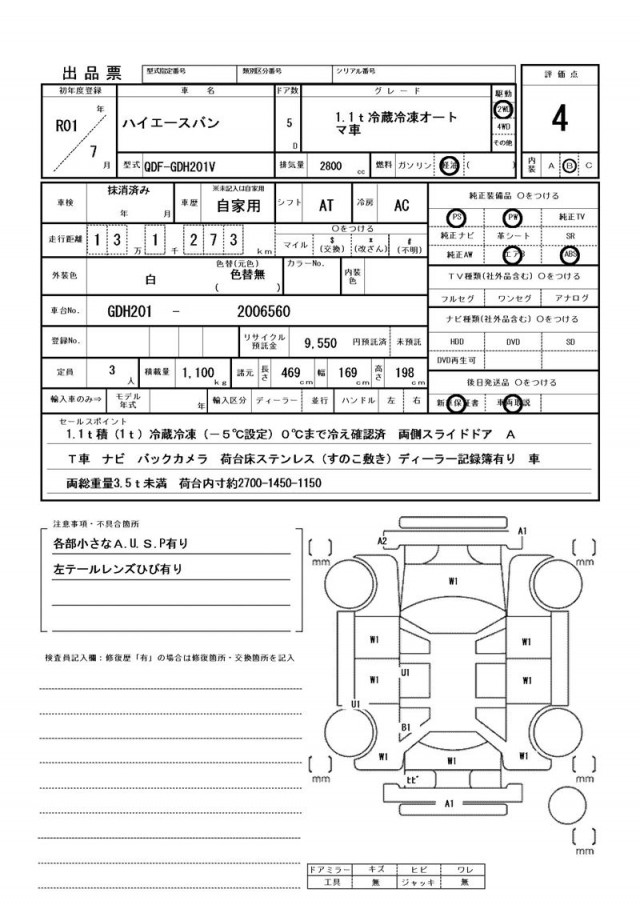 出品票
型式指定番号 類別区分番号 シリアル番号
初年度登録 車名 ドア数 グレード 駆動 評価点
R01 年 7 月
ハイエースバン
5 D
1.1t冷蔵冷凍オート
マ車
2WD
4WD
その他
4
型式 QDF-GDH201V 排気量 2800 cc 燃料 ガソリン 軽油 ( ) 内装 A B C
車検 抹消済み 年 月 車歴 ※未記入は自家用 自家用 シフト AT 冷房 AC
純正装備品 ○をつける
PS PW 純正TV
走行距離 13 万 1 千 273 km ○をつける マイル $(交換) *(改ざん) #(不明)
純正ナビ 革シート SR
純正AW エアB ABS
外装色 白 色替(元色) 色替無 ( ) カラーNo. 内装色
TV種類(社外品含む) ○をつける
フルセグ ワンセグ アナログ
車台No. GDH201 - 2006560
ナビ種類(社外品含む) ○をつける
登録No. リサイクル預託金 9,550 円預託済 未預託
HDD DVD SD
DVD再生可
定員 3 人 積載量 1,100 kg 諸元 長さ 469 cm 幅 169 cm 高さ 198 cm
後日発送品 ○をつける
輸入車のみ⇒ モデル年式 年 輸入区分 ディーラー 並行 ハンドル 左 右
新車保証書 車両取説
セールスポイント
1.1t積(1t)冷蔵冷凍(-5℃設定)0℃まで冷え確認済 両側スライドドア A
T車 ナビ バックカメラ 荷台床ステンレス(すのこ敷き)ディーラー記録簿有り 車
両総重量3.5t未満 荷台内寸約2700-1450-1150
注意事項・不具合箇所
各部小さなA.U.S.P有り
左テールレンズひび有り
検査員記入欄：修復歴「有」の場合は修復箇所・交換箇所を記入
A2 A1
mm mm
W1
W1 W1
W1 U1 W1
U1
B1
W1 W1 W1
mm ヒビ mm
A1
mm
ドアミラー キズ ヒビ ワレ
工具 無 ジャッキ 無